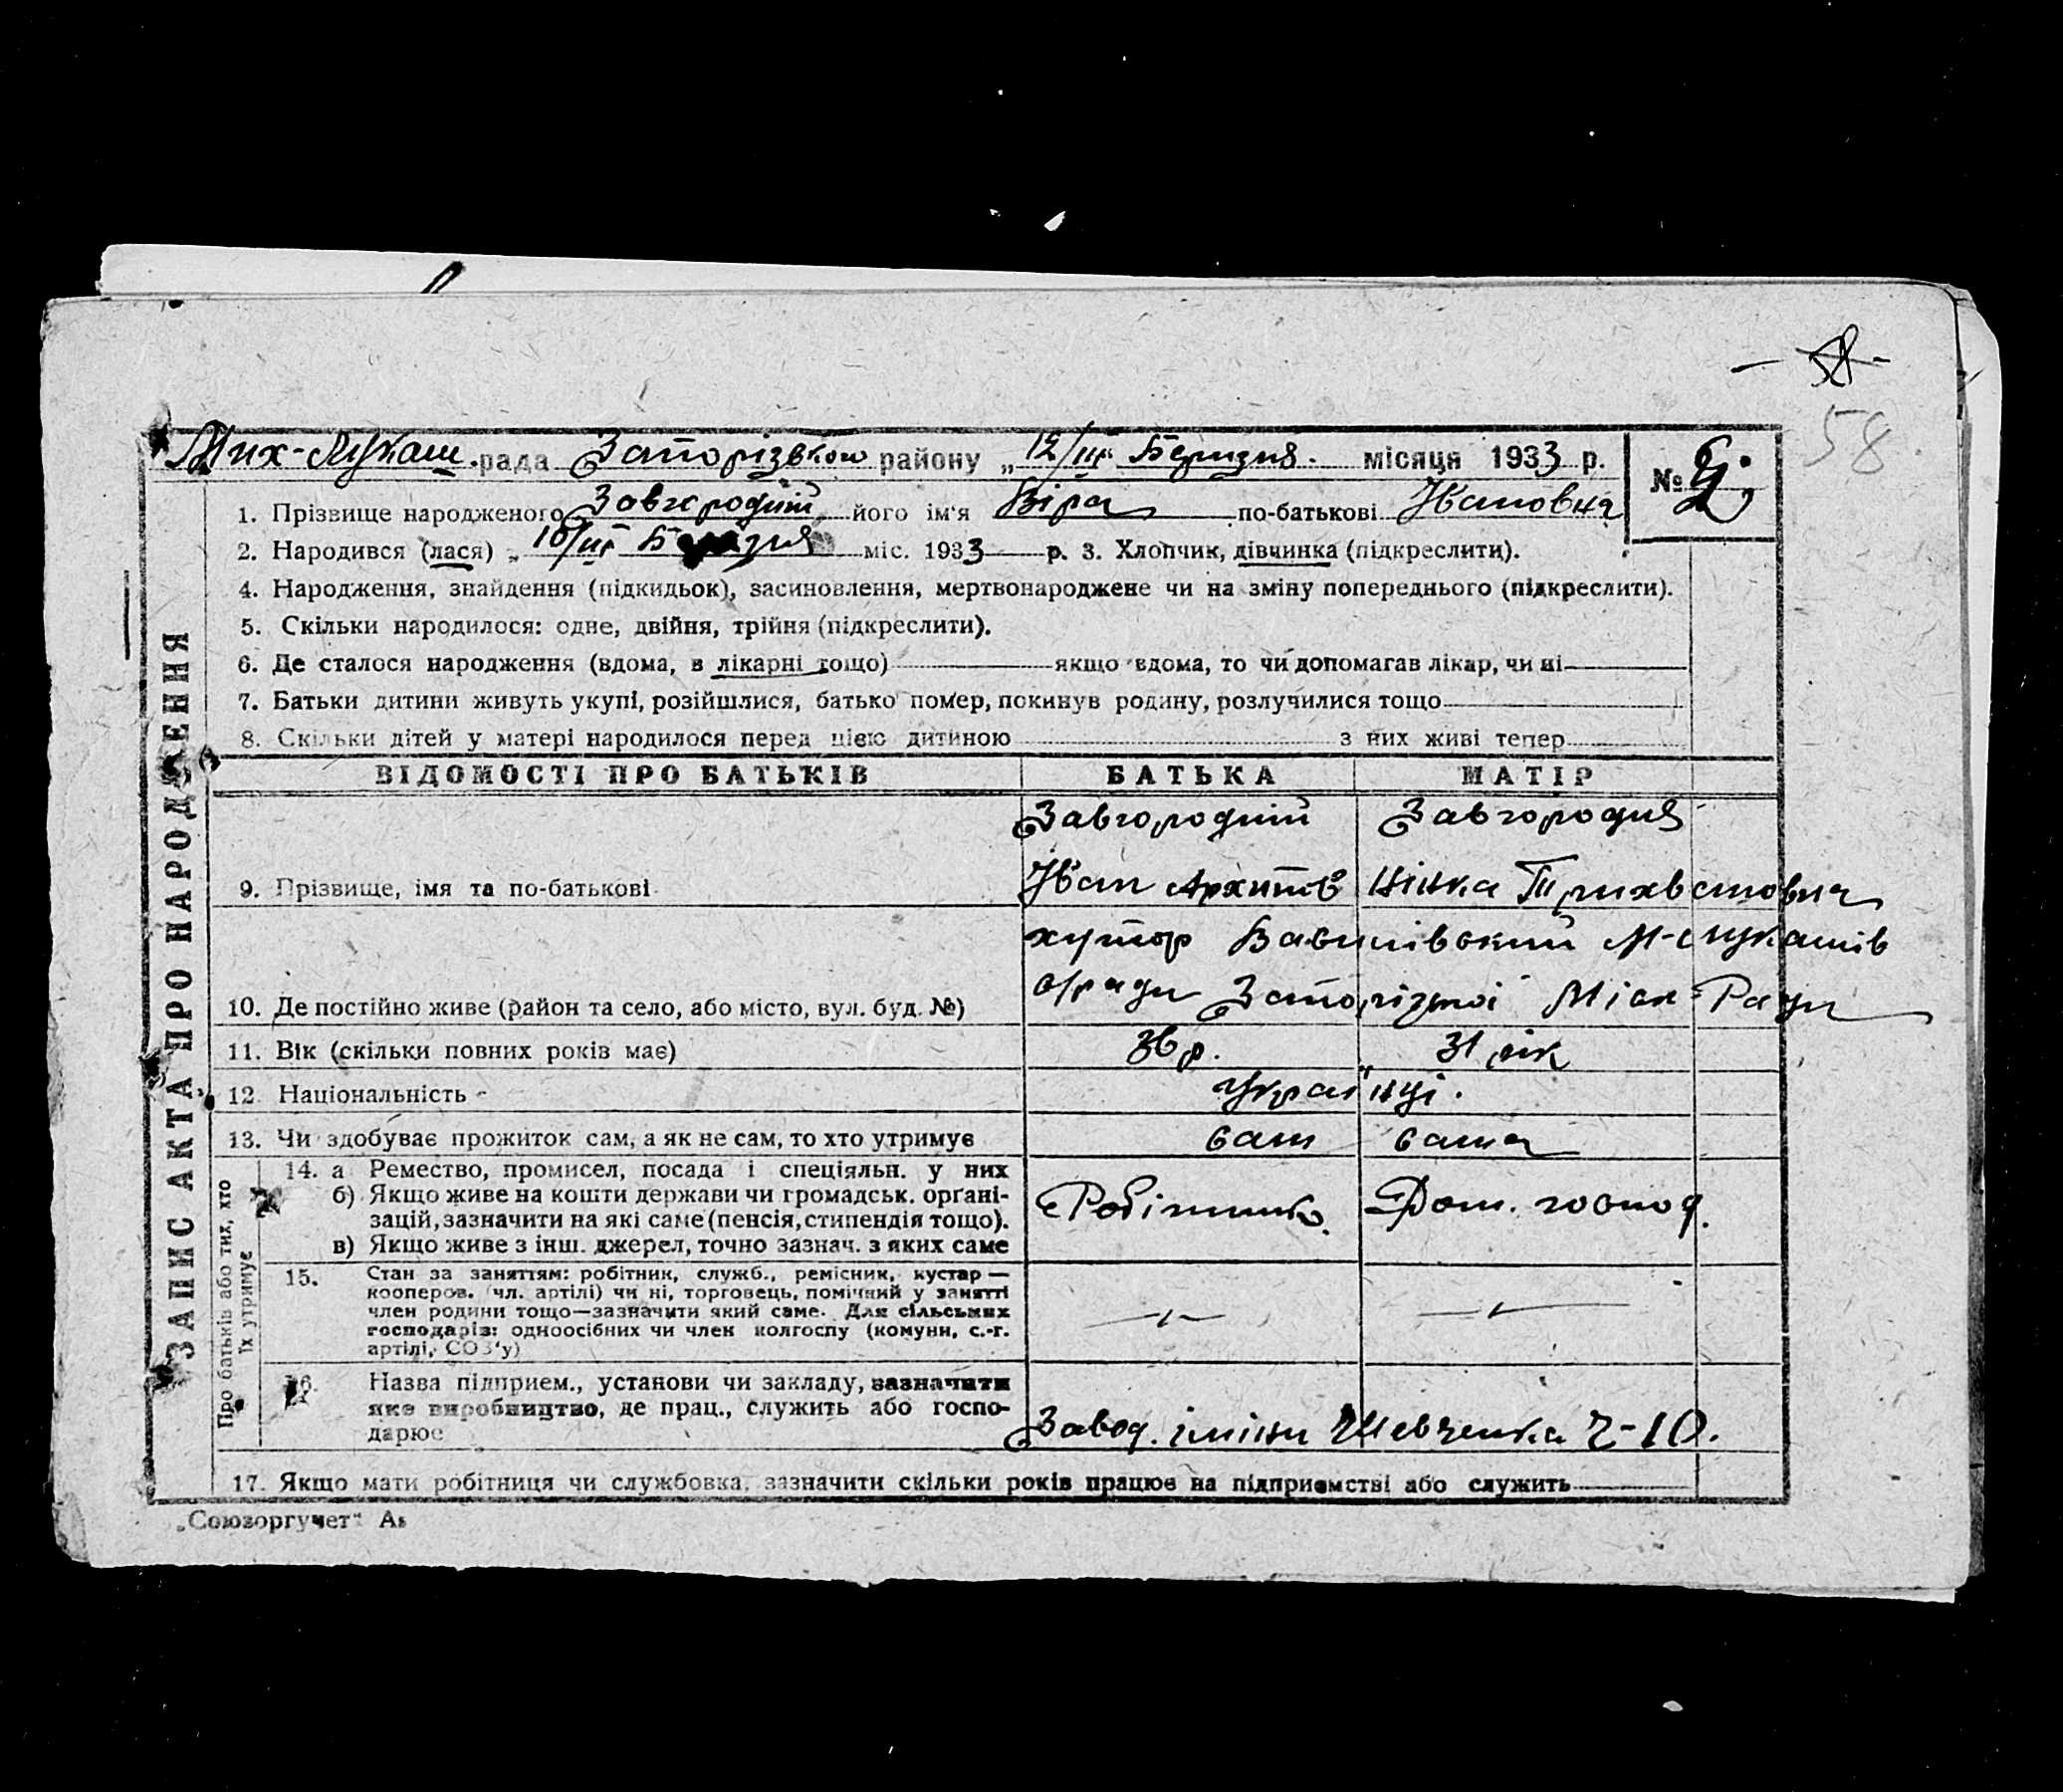 58
58
Мих-Лукаш. рада Запорізького району „12/III Березня. місяця 1933 р. №
1. Прізвище народженого Завгородній його ім'я Віра по-батькові Івановна
2. Народився (лася) „10/III Березня міс. 1933 р. 3. Хлопчик, дівчинка (підкреслити).
4. Народження, знайдення (підкидьок), засиновлення, мертвонароджене чи на зміну попереднього (підкреслити).
5. Скільки народилося: одне, двійня, трійня (підкреслити).
6. Де сталося народження (вдома, в лікарні тощо) якщо вдома, то чи допомагав лікар, чи ні
7. Батьки дитини живуть укупі, розійшлися, батько помер, покинув родину, розлучилися тощо
8. Скільки дітей у матері народилося перед цією дитиною з них живі тепер
ЗАПИС АКТА ПРО НАРОДЖЕННЯ
ВІДОМОСТІ ПРО БАТЬКІВ БАТЬКА МАТІР
Завгородній Завгородня
9. Прізвище, імя та по-батькові Іван Архипов
хутор
с/ради Запорізької Міск-Ради
10. Де постійно живе (район та село, або місто, вул. буд. №)
11. Вік (скільки повних років має) 36 р. 31 рік
12. Національність Українці.
13. Чи здобуває прожиток сам, а як не сам, то хто утримує сам сама
Про батьків або тих, хто їх утримує
14. а Ремество, промисел, посада і спеціяльн. у них
б) Якщо живе на кошти держави чи громадськ. орґані-
зацій, зазначити на які саме (пенсія, стипендія тощо). Робітник. Дом. господ.
в) Якщо живе з інш. джерел, точно зазнач. з яких саме
15. Стан за заняттям: робітник, служб., ремісник, кустар —
кооперов. (чл. артілі) чи ні, торговець, помічний у занятті
член родини тощо—зазначити який саме. Для сільських
господарів: одноосібних чи член колгоспу (комуни, с.-г.
артілі, СОЗ'у)
16. Назва підприєм., установи чи закладу, зазначити
яке виробництво, де прац., служить або госпо-
дарює Завод. іміни Шевченка Ч-10.
17. Якщо мати робітниця чи службовка, зазначити скільки років працює на підприємстві або служить
„Союзоргучет“